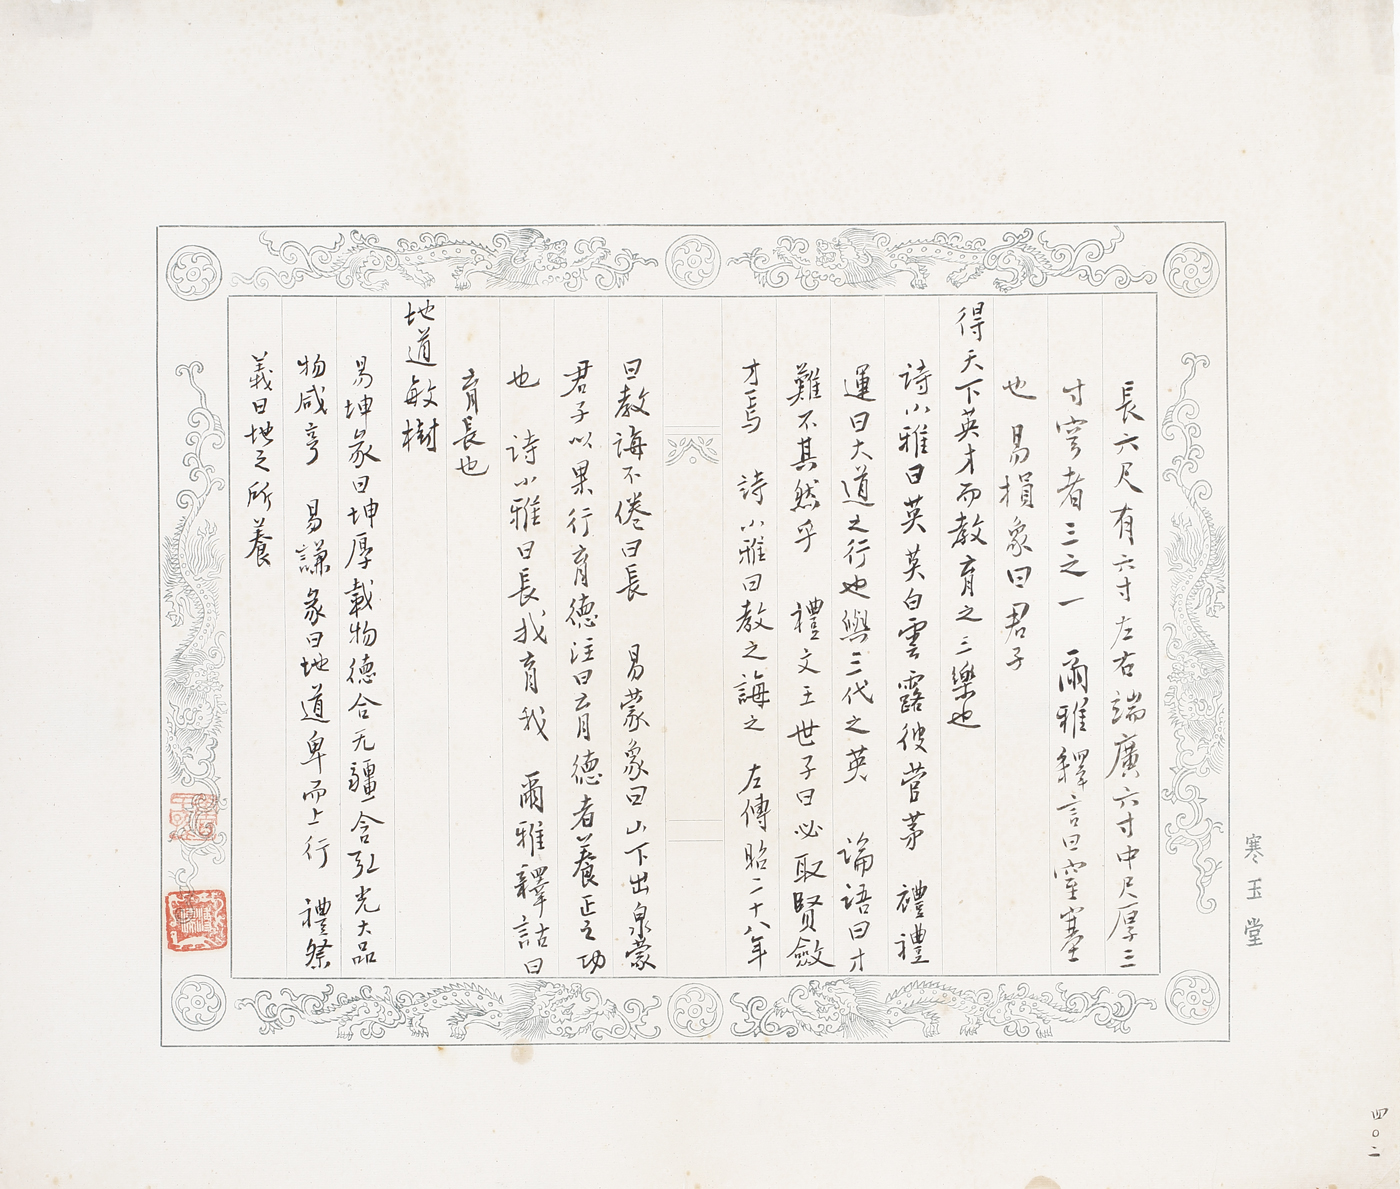 長六尺有六寸左右端廣六寸中尺厚三
寸穹者三之一　爾雅釋言曰窒塞
也　易損象曰君子
得天下英才而教育之三樂也
詩小雅曰英英白雲露彼菅茅　禮禮
運曰大道之行也與三代之英　論語曰才
難不其然乎　禮文王世子曰必取賢斂
才焉　詩小雅曰教之誨之　左傳昭二十八年
曰教誨不倦曰長　易蒙象曰山下出泉蒙
君子以果行育德注曰育德者養正之功
也　詩小雅曰長我育我　爾雅釋詁曰
育長也
地道敏樹
易坤彖曰坤厚載物德合无疆含弘光大品
物咸亨　易謙彖曰地道卑而上行　禮祭
義曰地之所養
寒玉堂
四〇二